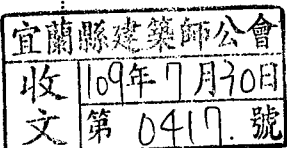 宜蘭縣建築師公會
收文
109年7月30日
第 0417. 號